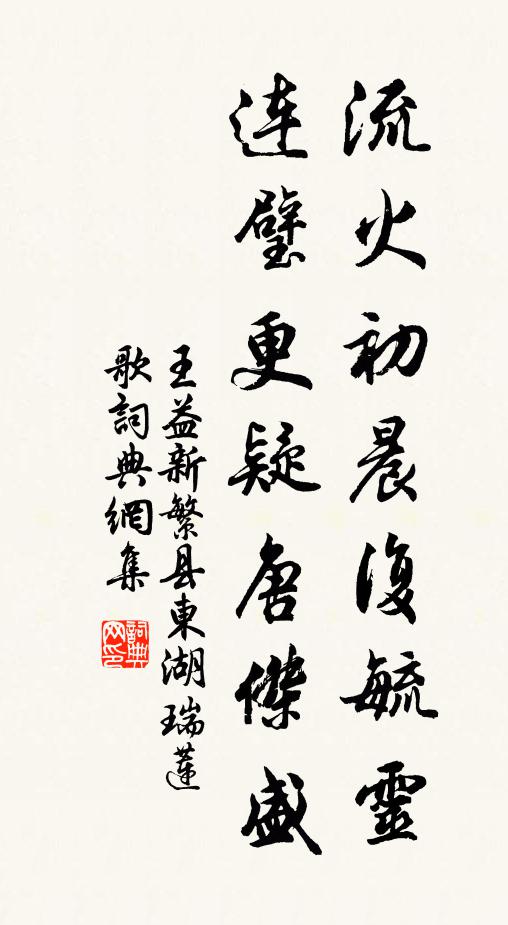 流火初晨復毓靈
連璧更疑唐傑盛
王益新繁县東湖瑞蓮
歌詞典網集
詞典网印